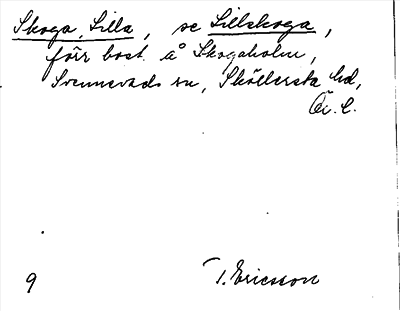 Skoga, Lilla, se Lillskoga,
förr bost. å Skogaholm,
Svennevads sn, Sköllersta hd,
Ör. l.
9 T. Ericsson